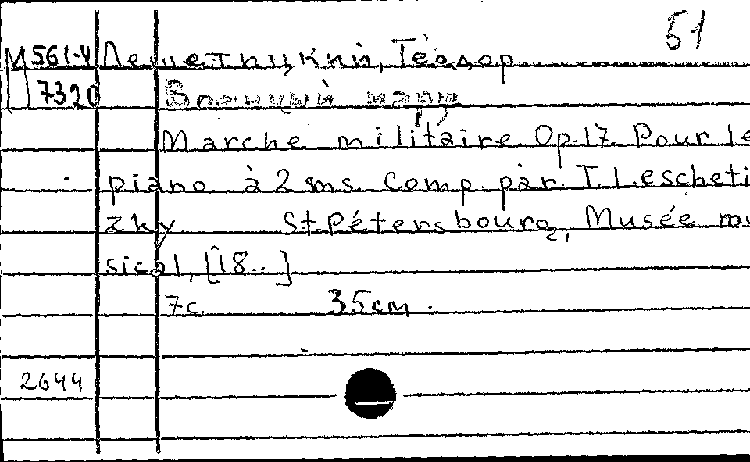 51
М 561-4 Лешетицкий, Теодор
7320 Военный марш
Marche militaire Op.17. Pour le
piano à 2 ms. Comp. par T. Lescheti
zky St.Pétersbourg, Musée mu
sical, [18..]
7c. 35см.
2644